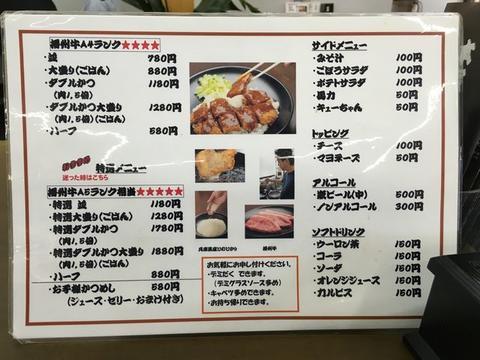 播州牛A4ランク★★★★
・並 780円
・大盛り(ごはん) 880円
・ダブルかつ 1180円
(肉1.5倍)
・ダブルかつ大盛り 1280円
(肉1.5倍)(ごはん)
・ハーフ 580円
特選メニュー
迷った時はこちら
播州牛A5ランク相当★★★★★
・特選 並 1180円
・特選大盛り(ごはん) 1280円
・特選ダブルかつ 1780円
・特選ダブルかつ大盛り 1880円
(肉1.5倍)(ごはん)
・ハーフ 880円
・お子様かつめし 580円
(ジュース・ゼリー・おまけ付き)
兵庫県産ひのひかり
播州牛
お気軽にお申し付けください。
・デミだく できます。
(デミグラスソース多め)
・キャベツ多めできます。
・お持ち帰りできます。
サイドメニュー
・みそ汁 100円
・ごぼうサラダ 100円
・ポテトサラダ 100円
・馬力 50円
・キューちゃん 50円
トッピング
・チーズ 100円
・マヨネーズ 50円
アルコール
・瓶ビール(中) 500円
・ノンアルコール 300円
ソフトドリンク
・ウーロン茶 150円
・コーラ 150円
・ソーダ 150円
・オレンジジュース 150円
・カルピス 150円